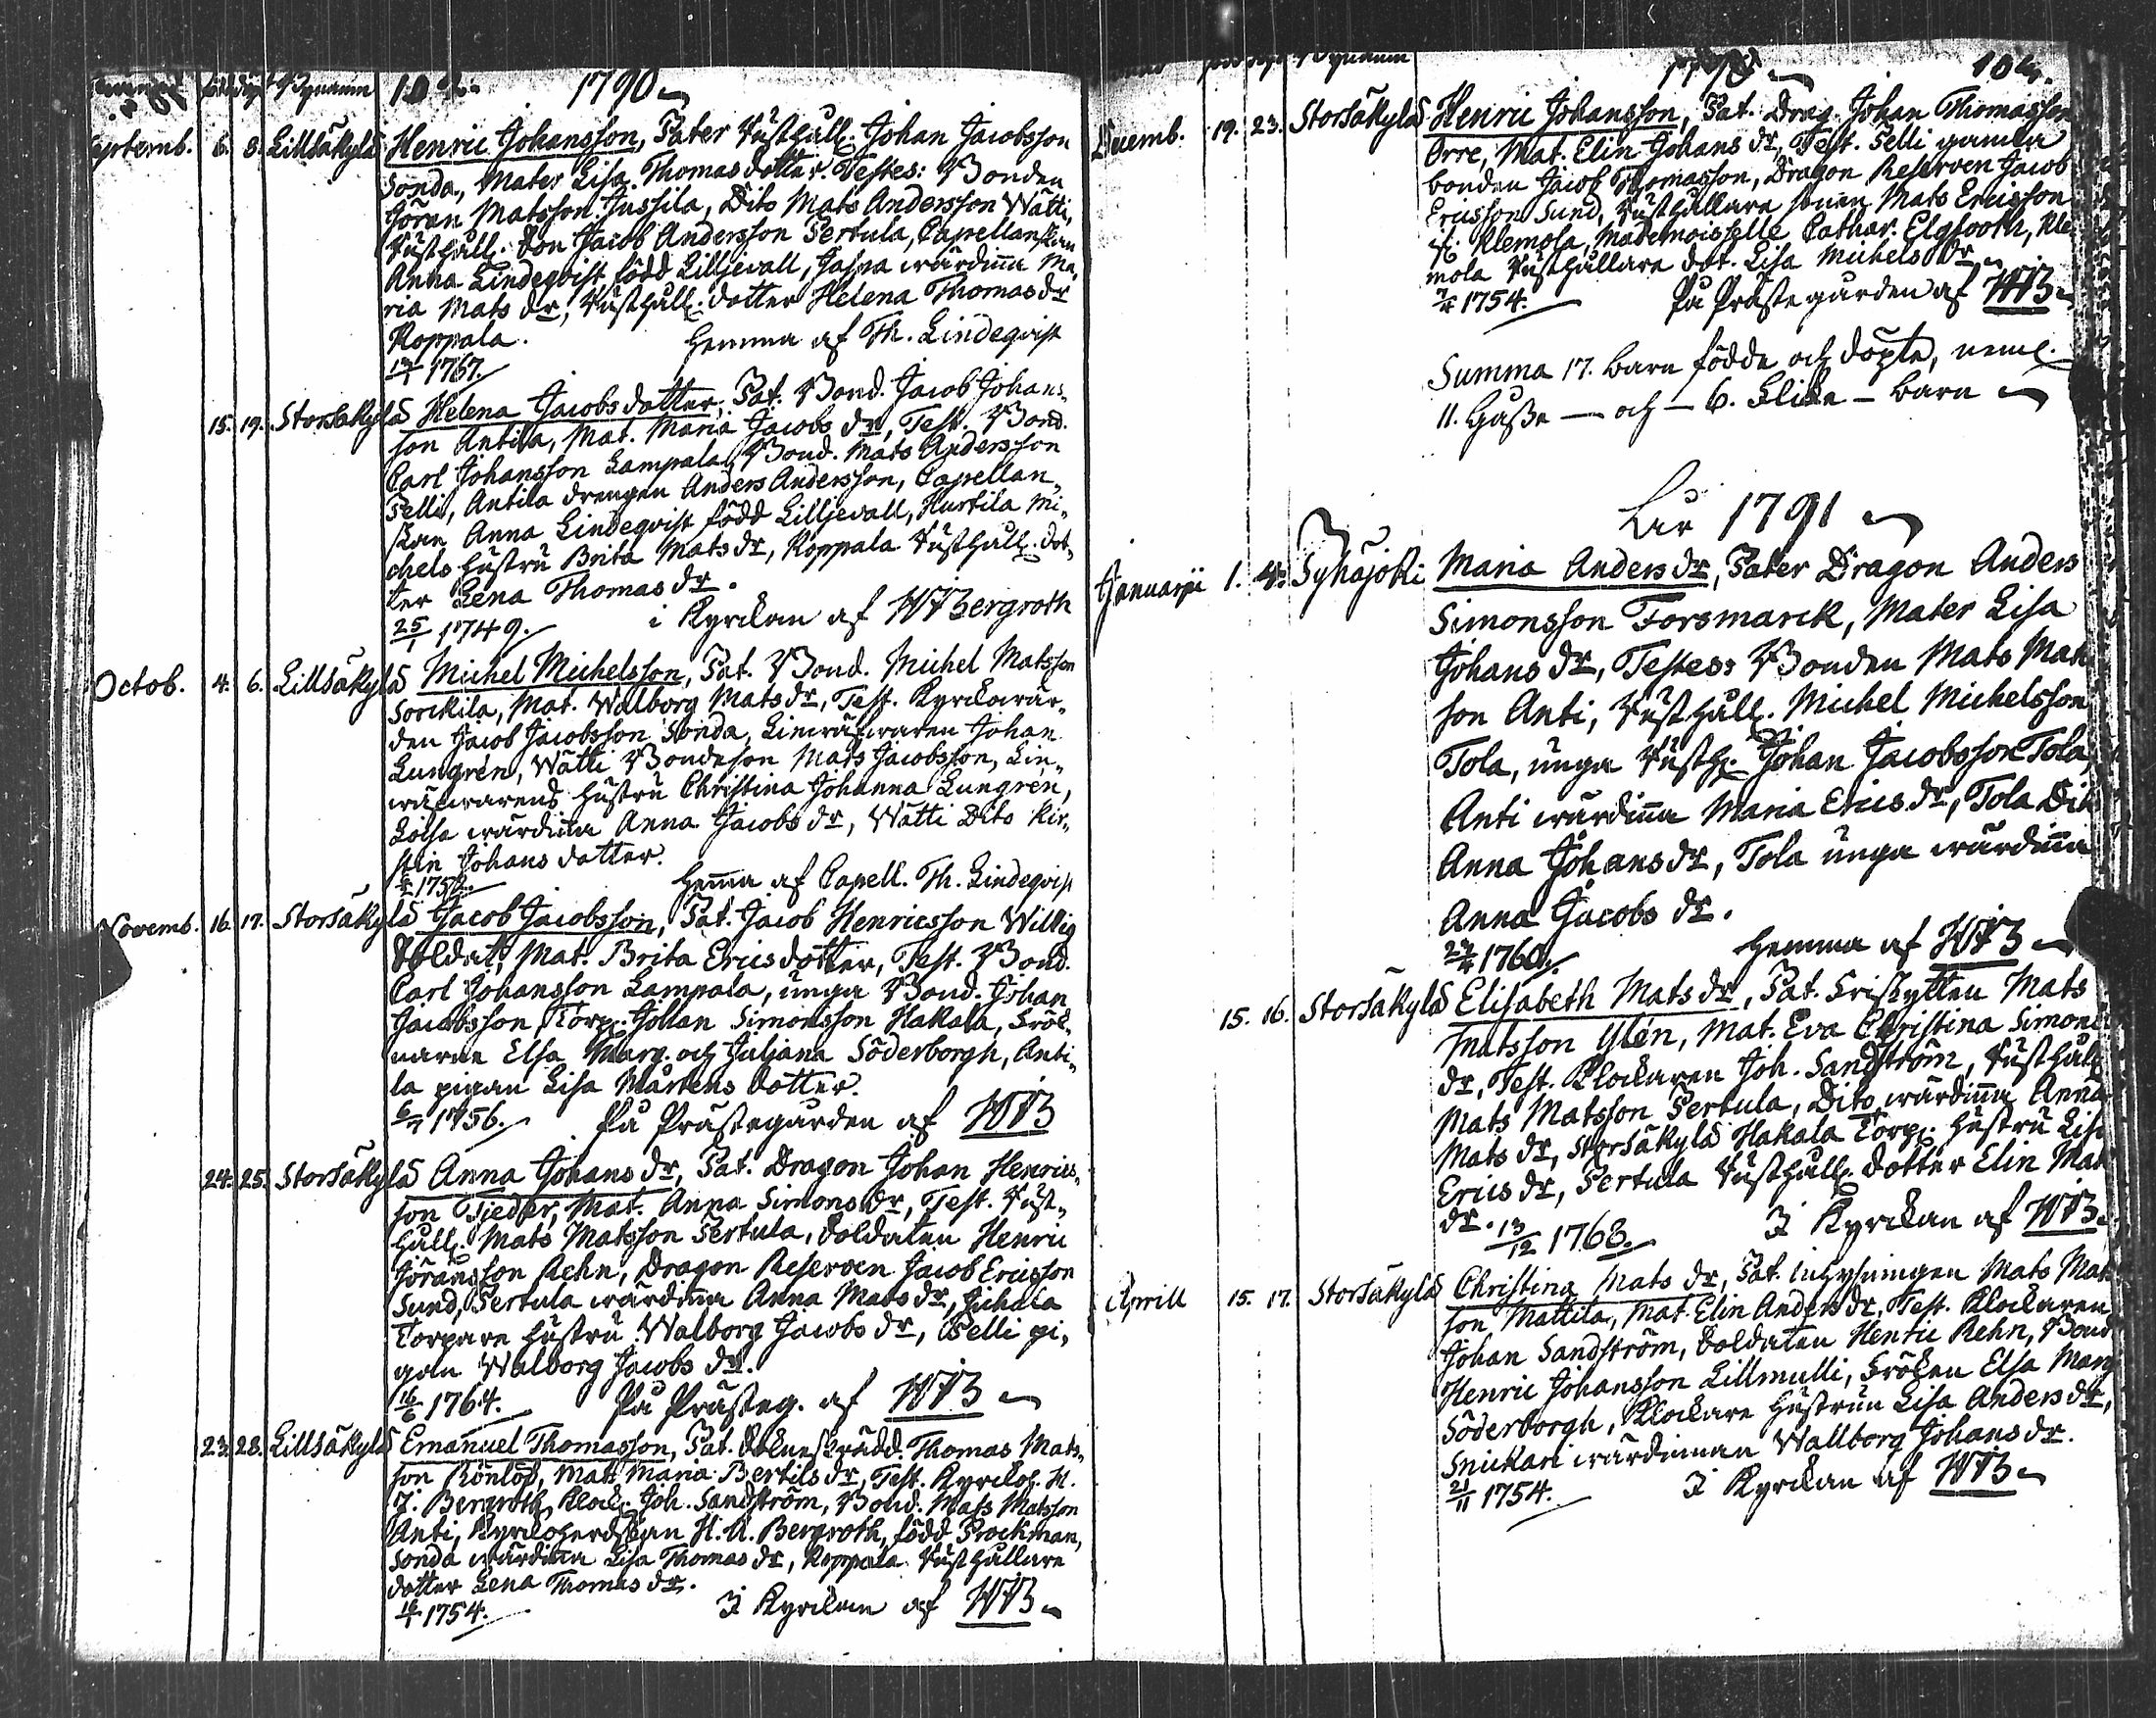 1790
Septemb. 6. 8. Lillsäkylä Henric Johansson, Pater Rusthåll. Johan Jacobsson
Sonda, Mater Lisa Thomasdotter. Testes: Bonden
Jöran Matsson Jussila, Dito Mats Andersson Wätti,
Rusthåll. Son Jacob Andersson Pertula, Capellanskan
Anna Lindeqvist född Lilljevall, Jaspa wärdinna Ma-
ria Mats dr, Rusthåll. dotter Helena Thomas dr
Koppala. Hemma af Th. Lindeqvist
1767.
15. 19. Storsäkylä Helena Jacobsdotter, Pat. Bond. Jacob Johans-
son Antila, Mat. Maria Jacobs dr, Test. Bond.
Carl Johansson Lampala, Bond. Mats Andersson
Pelli, Antila drengen Anders Andersson, Capellan-
skan Anna Lindeqvist född Lilljevall, Hurtila Mi-
chels hustru Brita Mats dr, Koppala Rusthåll. dot-
ter Lena Thomas dr.
25/1 1749. i Kyrckan af HJBergroth
Octob. 4. 6. Lillsäkylä Michel Michelsson, Pat. Bond. Michel Matsson
Sorckila, Mat. Walborg Mats dr, Test. Kyrckowär-
den Jacob Jacobsson Sonda, Linwäfwaren Johan
Lungrén, Wätti Bondeson Mats Jacobsson, Lin-
wäfwarens hustru Christina Johanna Lungrén,
wärdinna Anna Jacobs dr, Wätti Dito Kir-
stin Johansdotter.
Hema af Capell. Th. Lindeqvist
Novemb. 16. 17. Storsäkylä Jacob Jacobsson, Pat. Jacob Henricsson Willig
Soldat, Mat. Brita Ericsdotter, Test. Bond.
Carl Johansson Lampala, unga Bond. Johan
Jacobsson, Torp. Johan Simonsson Hakala, Frök-
narne Elsa Marg. och Juliana Söderborgh, Anti-
la pigan Lisa Mårtens dotter.
1756. På Prästegården af HJB
24. 25. Storsäkylä Anna Johans dr, Pat. Dragon Johan Henrics-
son Tieder, Mat. Anna Simons dr, Test. Rust-
håll. Mats Matsson Pertula, Soldaten Henric
Jöransson Rehn, Dragon Reserven Jacob Ericsson
Sund, Pertula wärdinna Anna Mats dr, Juhala
Torpare hustru Walborg Jacobs dr, Pelli pi-
gan Walborg Jacobs dr.
16/6 1764. På Prästeg. af HJB
23. 28. Lillsäkylä Emanuel Thomasson, Pat. Sockneskrädd. Thomas Mats-
son Rönlöf, Mat. Maria Bertils dr, Test. Kyrckoh. H.
J. Bergroth, Klock. Joh. Sandström, Bond. Mats Matsson
Anti, Kyrckoherdskan H. U. Bergroth, född Prockman,
Sonda wärdinna Lisa Thomas dr, Koppala Rusthållare
dotter Lena Thomas dr.
1754. I Kyrckan af HJB
Decemb. 19. 23. Storsäkylä Henric Johansson, Pat. Drag. Johan Thomasson
Orre, Mat. Elin Johans dr, Test. Pelli gamla
bonden Jacob Thomasson, Dragon Reserven Jacob
Ericsson Sund, Rusthållare sonen Mats Ericsson
Klemola, Mademoiselle Cathar. Elgfooth, Kle-
mola Rusthållare dot. Lisa Michels dr
1754. På Prästegården af HJB
Summa 17. barn födde och döpte, neml.
11. Gåsse — och — 6. Flicke — barn
1791
Januarii 1. Pyhäjoki Maria Anders dr, Pater Dragon Anders
Simonsson Forsmarck, Mater Lisa
Johans dr, Testes: Bonden Mats Mats
son Anti, Rusthåll. Michel Michelsson
Tola, unga Rusth. Johan Jacobsson Tola,
Anti wärdinna Maria Erics dr, Tola Dito
Anna Johans dr, Tola unga wärdinna
Anna Jacobs dr.
1760. Hemma af HJB
15. 16. Storsäkylä Elisabeth Mats dr, Pat. Friskytten Mats
Matsson Ylén, Mat. Eva Christina Simons
dr, Test. Klockaren Joh. Sandström, Rusthåll
Mats Matsson Pertula, Dito wärdinna Anna
Mats dr, Storsäkylä Hakala Torp. hustru Lisa
Erics dr, Pertula Rusthåll. dotter Elin Mats
dr. 13/12 1763. I Kyrckan af HJB
Aprill 15. 17. Storsäkylä Christina Mats dr, Pat. Inhysingen Mats Mats
son Mattila, Mat. Elin Anders dr, Test. Klockaren
Johan Sandström, Soldaten Henric Rehn, Bond
Henric Johansson Lillmulli, Fröken Elsa Marg
Söderborgh, Klockare hustrun Lisa Anders dr,
Snickari wärdinnan Wallborg Johans dr.
21/11 1754. I Kyrckan af HJB